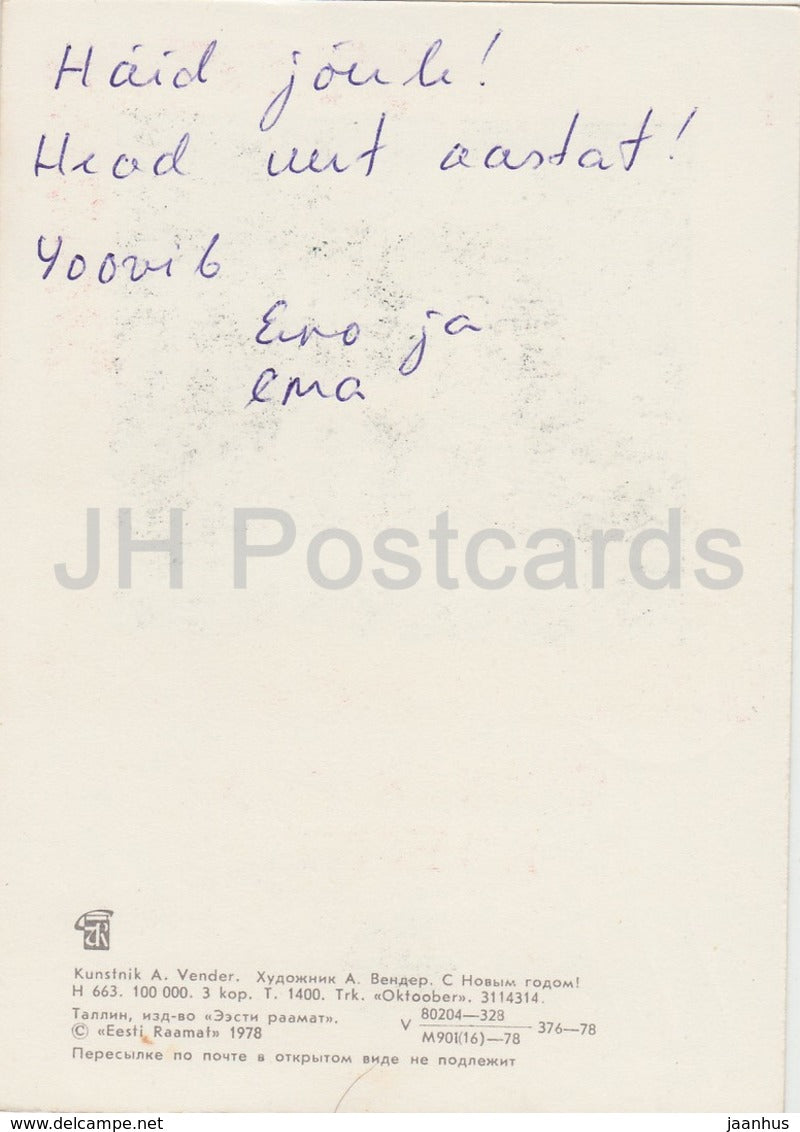 Häid jõule!
Head uut aastat!
Soovib
Eno ja
ema
JH Postcards
Kunstnik A. Vender. Художник А. Вендер. С Новым годом!
Н 663. 100 000. 3 kop. T. 1400. Trk. «Oktoober». 3114314.
Таллин, изд-во «Ээсти раамат».
© «Eesti Raamat» 1978
V 80204—328 / М901(16)—78 376—78
Пересылке по почте в открытом виде не подлежит
www.delcampe.net
jaanhus